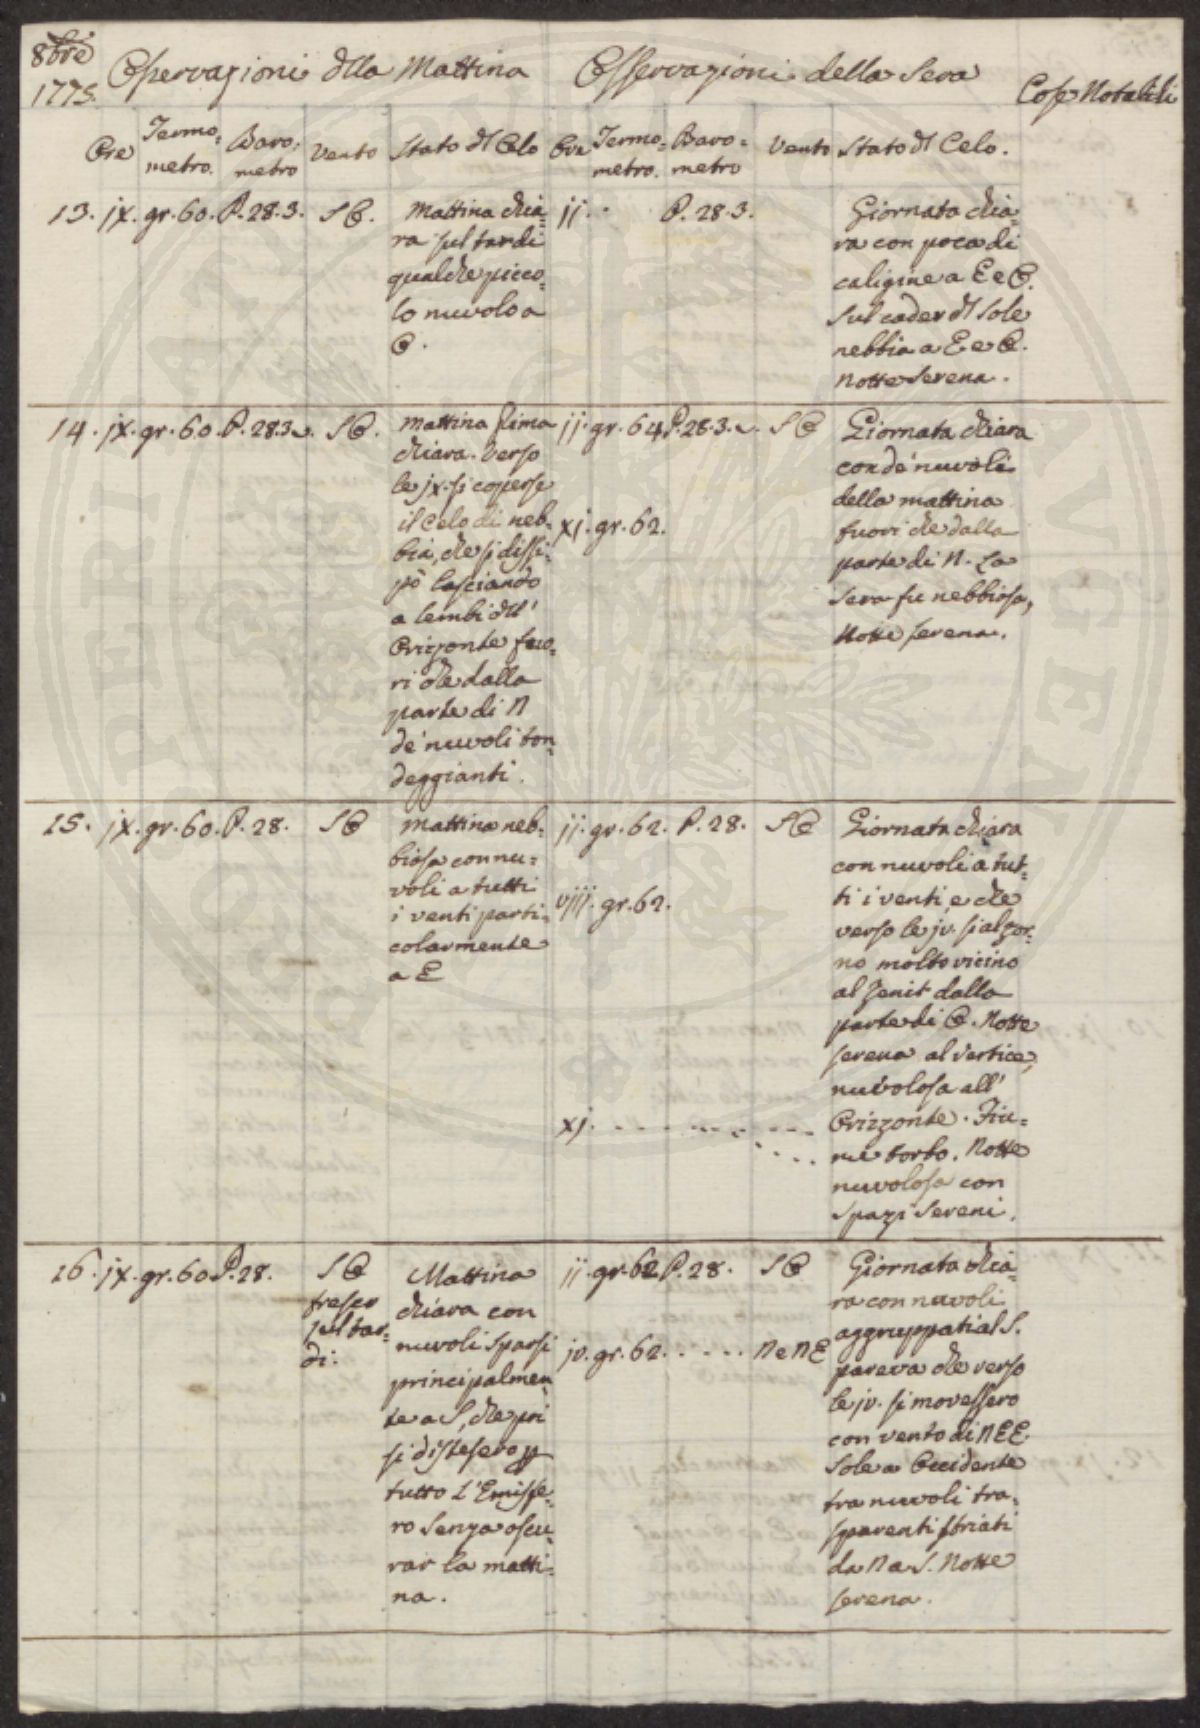 8bre
1775.
Osservazioni dlla Mattina
Osservazioni della Sera
Cose Notabili
Ore Termo= Baro= Vento Stato dl Celo Ore Termo= Baro= Vento Stato dl Celo.
metro. metro metro. metro
13. jx. gr. 60. P. 28. 3. SO.
Mattina chia=
ra sul tardi
qualche picco=
lo nuvolo a
O.
ij. . P. 28. 3.
Giornata chia=
ra con poca di
caligine a E e O.
Sul cader dl Sole
nebbia a E e O.
Notte Serena.
14. jx. gr. 60. P. 28.3 SO.
Mattina prima
chiara. Verso
le jx. si coperse
il Celo di neb=
bia, che si dissi=
pò lasciando
a lembi dll'
Orizonte fuo=
ri che dalla
parte di N
de' nuvoli ton=
deggianti.
ij. gr. 64 P. 28. 3. SO
xj. gr. 62.
Giornata chiara
con de' nuvoli
della mattina
fuori che dalla
parte di N. La
Sera fu nebbiosa,
Notte serena.
15. jx. gr. 60. P. 28. SO
Mattina neb=
biosa con nu=
voli a tutti
i venti parti=
colarmente
a E
ij. gr. 62. P. 28. SO
viij. gr. 62.
xj.
Giornata chiara
con nuvoli a tut=
ti i venti, e che
verso le jv. si alzor=
no molto vicino
al Zenit dalla
parte di O. Notte
serena al vertice,
nuvolosa all'
Orizzonte. Fiu=
me torbo. Notte
nuvolosa con
Spazi Sereni.
16. jx. gr. 60 P. 28. SO
fresco
sul tar=
di.
Mattina
chiara con
nuvoli sparsi
principalmen=
te a S, che poi
si distesero p
tutto l'Emisfe=
ro senza oscu=
rar la matti=
na.
ij. gr. 62 P. 28. SO
jv. gr. 62. . . . . . N e NE
Giornata chia=
ra con nuvoli
aggruppati al S.
pareva che verso
le jv. si movessero
con vento di NEE.
Sole a Occidente
tra nuvoli tra=
sparenti striati
da N a S. Notte
serena.